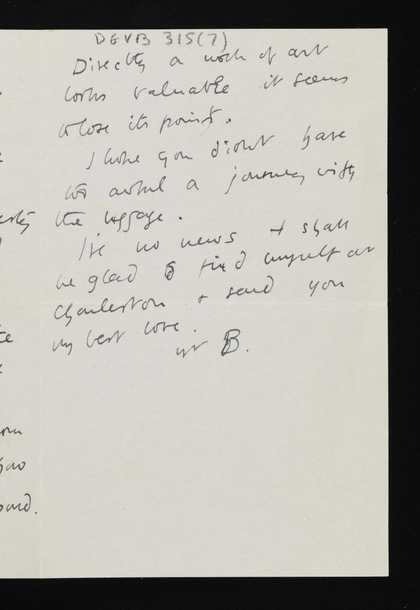 DGVB 315(7)
Directly a work of art
looks valuable it seems
to lose its point.
I hope you didn't have
too awful a journey with
the luggage.
I've no news & shall
be glad to find myself at
Charleston & send you
my best love.
yr B.